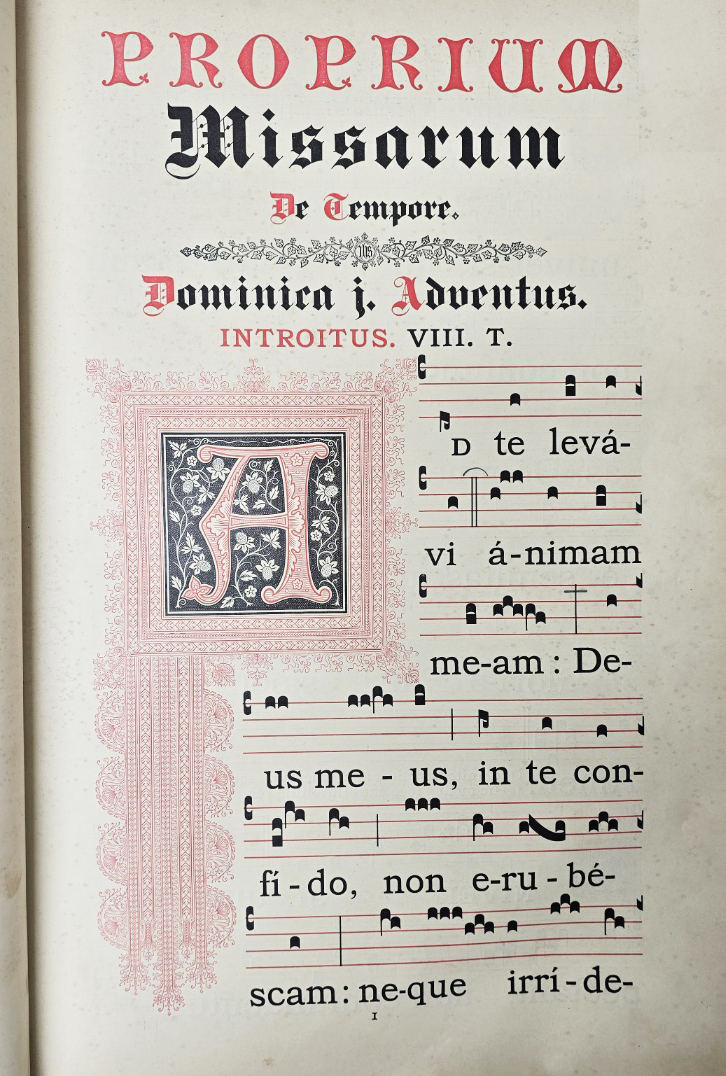 PROPRIUM
Missarum
De Tempore.
IHS
Dominica j. Adventus.
INTROITUS. VIII. T.
AD te levá-
vi á-nimam
me-am : De-
us me - us, in te con-
fí - do, non e-ru - bé-
scam: ne-que irrí - de-
1